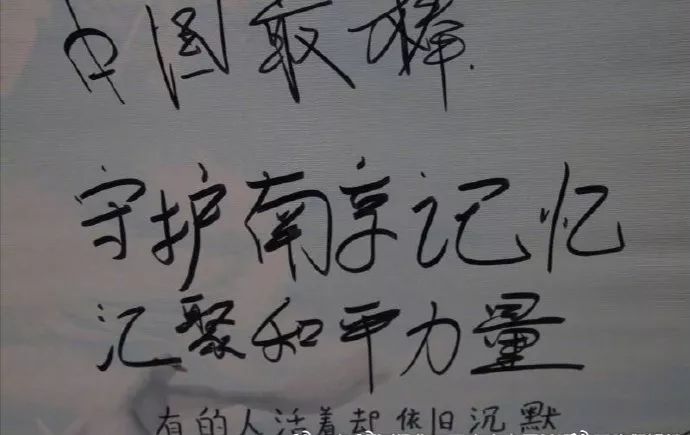 中国最棒.
守护南京记忆
汇聚和平力量
有的人活着却依旧沉默